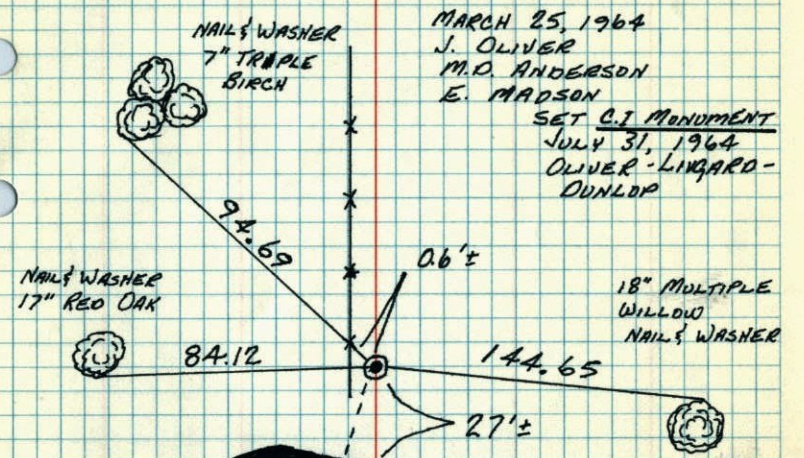 NAIL & WASHER
7" TRIPLE
BIRCH
MARCH 25, 1964
J. OLIVER
M.D. ANDERSON
E. MADSON
SET C.I MONUMENT
JULY 31, 1964
OLIVER - LINGARD -
DUNLOP
94.69
0.6'±
NAIL & WASHER
17" RED OAK
18" MULTIPLE
WILLOW
NAIL & WASHER
84.12
144.65
27'±